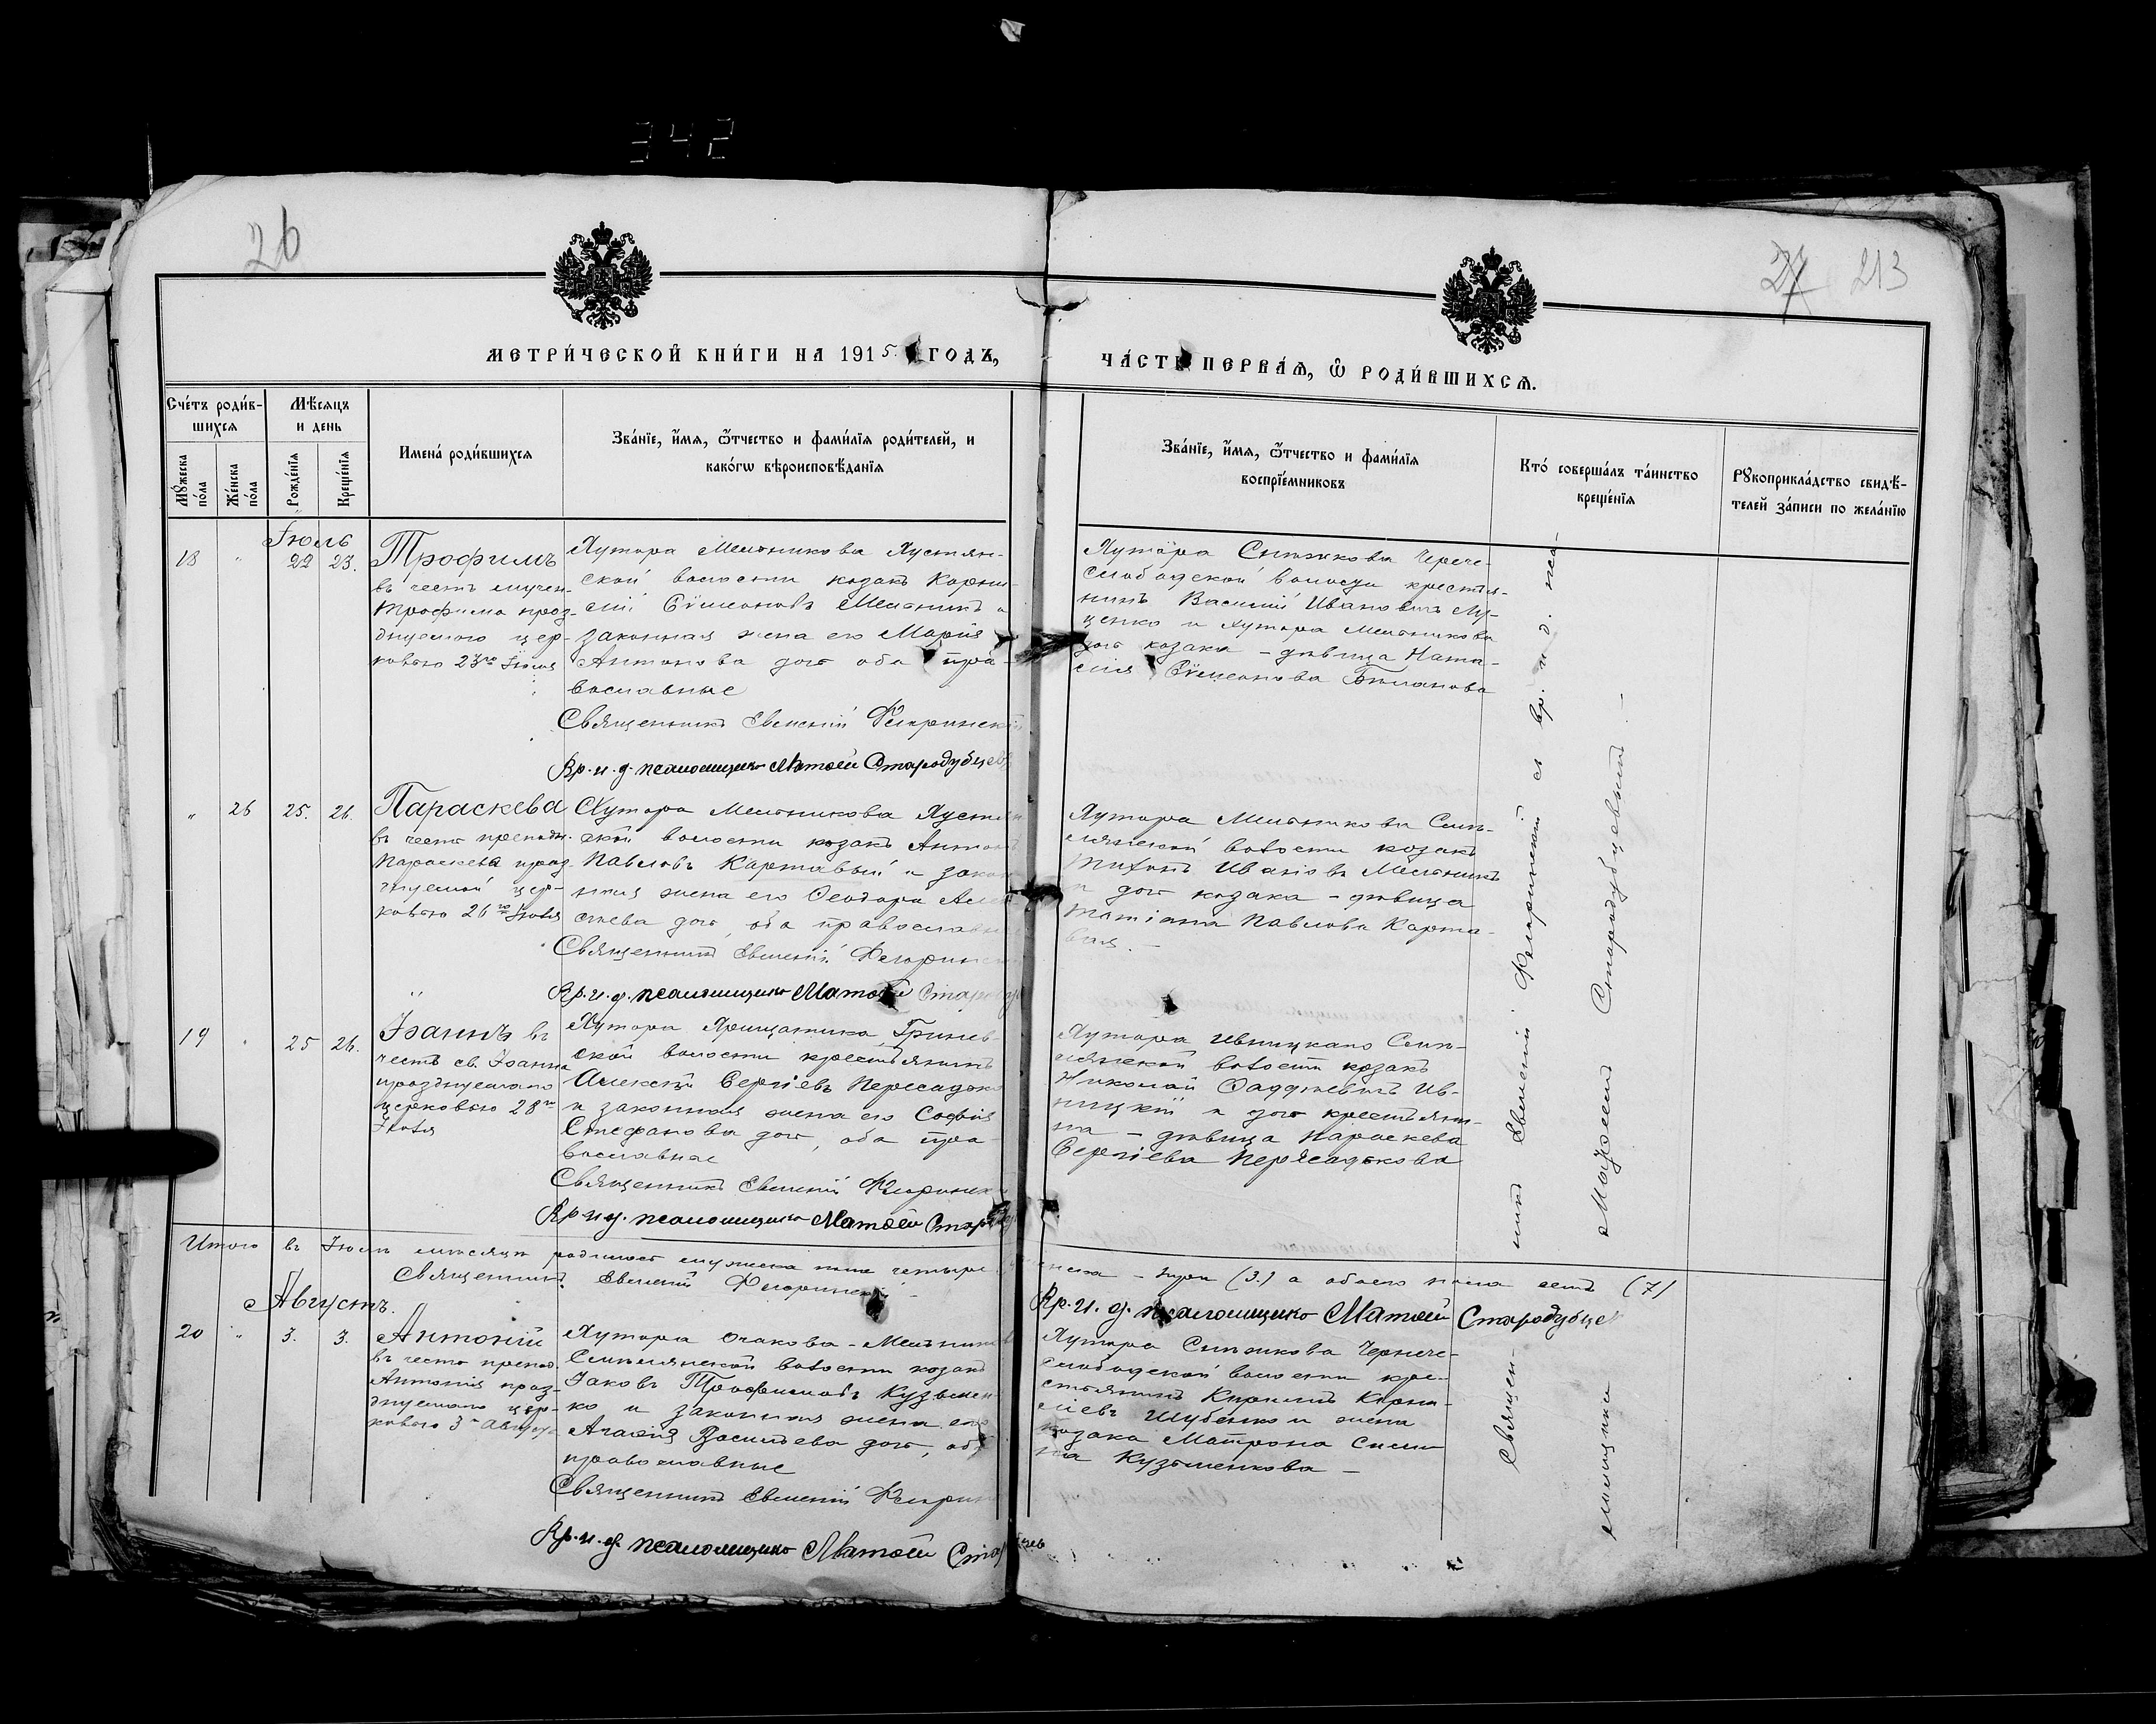 342
26
27 213
МЕТРИ́ЧЕСКОЙ КНИ́ГИ НА 1915. ГОДЪ,
ЧА́СТЬ ПЕРВАЯ, Ѡ РОДИ́ВШИХСЯ.
Сче́тъ роди́в-
шихся
Мѣ́сяцъ
и день
Мꙋ́жеска по́ла
Же́нска по́ла
Рожде́нїя
Креще́нїя
Имена́ роди́вшихся
Зва́нїе, и́мя, ѻ҆́тчество и фами́лїя роди́телей, и
како́гѡ вѣроисповѣ́данїя
Зва́нїе, и́мя, ѻ҆́тчество и фами́лїя
воспрїе́мниковъ
Кто́ соверша́лъ та́инство
креще́нїя
Рꙋкоприкла́дство свидѣ́-
телей за́писи по жела́нїю
Іюль
18 " 22 23.
Трофимъ
въ честь мучен.
Трофима праз-
днуемого цер-
ковью 23го Іюля
Хутора Мельникова Хустян-
ской волости козакъ Корни-
лій Сѵмеоновъ Мельникъ и
законная жена его Марія
Антонова доч. оба пра-
вославные
Священникъ Евгеній
Вр. и. д. псаломщика Матѳей Стародубцевъ
Хутора Ситникова Черне-
слободской волости крестья-
нинъ Василій Ивановъ Лу-
ценко и хутора Мельникова
доч козака - дѣвица Ната-
лія Сѵмеонова Бѣланова
" 26 25. 26.
Параскева
въ честь преподн.
Параскевы праз-
днуемой цер-
ковью 26го Іюля
Хутора Мельникова Хустян
ской волости козакъ Антонъ
Павловъ Картавый и закон
ная жена его Ѳеодора
ѣева доч, оба православн
Священникъ Евгеній
Вр. и. д. псаломщика Матѳей Стародуб
Хутора Мельникова Смѣ-
лянской волости козакъ
Тихонъ Ивановъ Мельникъ
и доч козака - дѣвица
Татіана Павлова Карта-
вая. -
19 " 25 26.
Іоаннъ въ
честь св. Іоанна
празднуемаго
церковью 28го
Іюля
Хутора Гринев-
ской волости крестьянинъ
Алексѣй Сергіевъ Пересадько
и законная жена его Софія
Стефанова доч, оба пра-
вославные
Священникъ Евгеній
Вр. и. д. псаломщика Матѳей Стар
Хутора Ивницкаго Смѣ-
лянской волости козакъ
Николай Ѳаддѣевъ Ив-
ницкій и доч крестьяни-
на - дѣвица Параскева
Сергіева Пересадькова
Итого въ Іюлѣ мѣсяцѣ родилось мужска пола четыре
женска - три (3.) а обоего пола семь (7)
Священникъ Евгеній
Вр. и. д. псаломщика Матѳей Стародубцев
Августъ.
20 " 3. 3.
Антоній
въ честь препод.
Антонія праз-
днуемаго цер-
ковью 3го Августа
Хутора Очакова-Мельников
Смѣлянской волости козакъ
Іаковъ Трофимовъ Кузьмен-
ко и законная жена его
Агаѳія Васильева доч, оба
православные
Священникъ Евгеній
Вр. и. д. псаломщика Матѳей Стародубцев
Хутора Ситникова Черне-
слободской волости кре-
стьянинъ Кириллъ Корни-
ліевъ Шубенко и жена
козака Матрона
на Кузьменкова -
Священ-
никъ Евгеній съ вр. и. д. пса-
ломщика Матѳеемъ Стародубцевымъ -